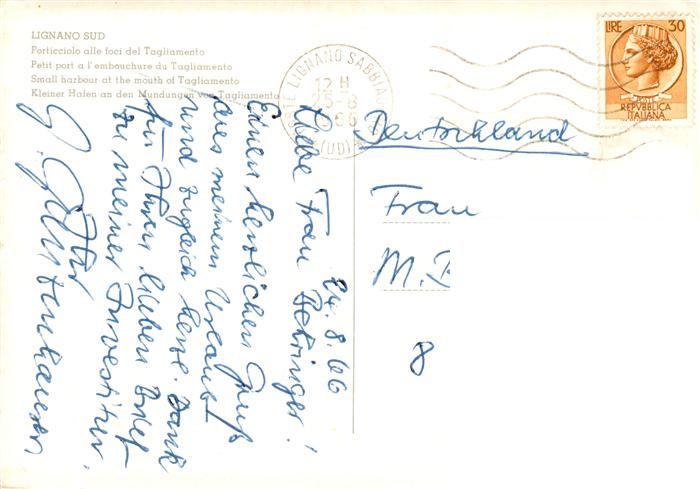 LIGNANO SUD
Porticciolo alle foci del Tagliamento
Petit port a l'embouchure du Tagliamento
Small harbour at the mouth of Tagliamento
Kleiner Hafen an den Mundungen von Tagliamento
LIGNANO SABBIA
12 H
25-8
(UD)
LIRE 30
POSTE
REPVBBLICA
ITALIANA
Deutschland
Frau
M. B
8
24.8.66
Liebe Frau Behringer!
Einen herzlichen Gruß
aus meinem Urlaub
und zugleich herzl. Dank
für Ihren lieben Brief
zu meiner Investitur.
Ihr
G.